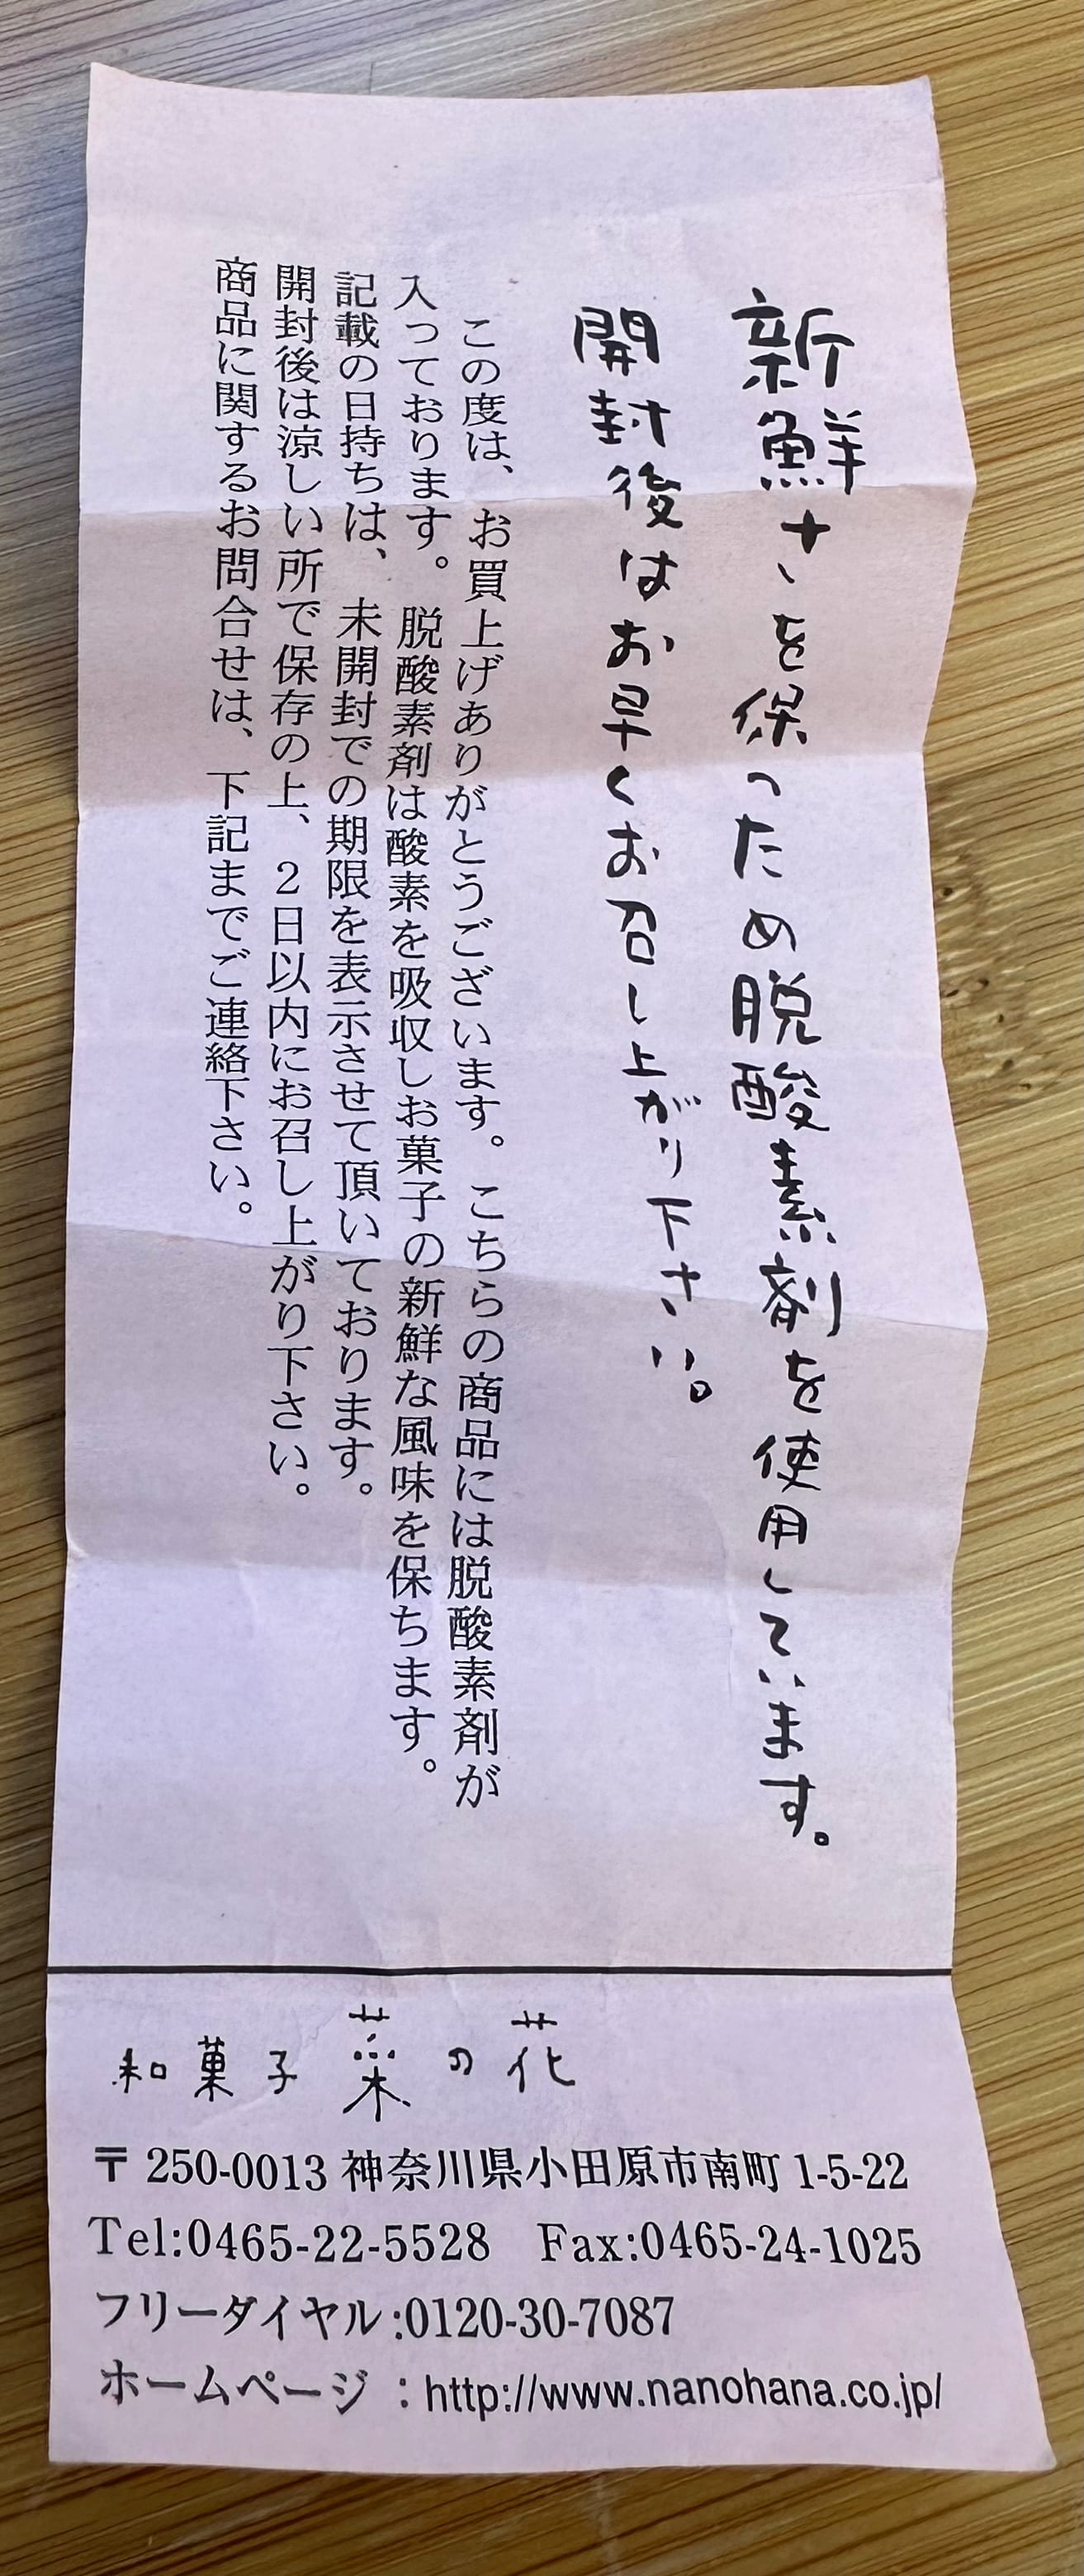 新鮮さを保つため脱酸素剤を使用しています。
開封後はお早くお召し上がり下さい。
この度は、お買上げありがとうございます。こちらの商品には脱酸素剤が
入っております。脱酸素剤は酸素を吸収しお菓子の新鮮な風味を保ちます。
記載の日持ちは、未開封での期限を表示させて頂いております。
開封後は涼しい所で保存の上、2日以内にお召し上がり下さい。
商品に関するお問合せは、下記までご連絡下さい。
和菓子 菜の花
〒250-0013 神奈川県小田原市南町 1-5-22
Tel:0465-22-5528 Fax:0465-24-1025
フリーダイヤル:0120-30-7087
ホームページ:http://www.nanohana.co.jp/